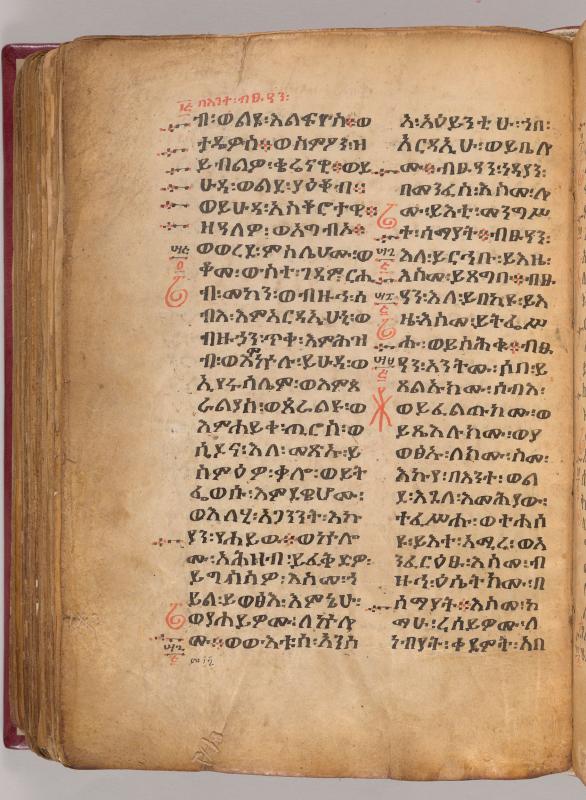 በእንተ፡ብፁዓን፡
ብ፡ወልደ፡እልፍዮስ፡ወ
ታዴዎስ፡ወስምዖን፡ዘ
ይብልዎ፡ቄሬናዊ፡ወይ
ሁዳ፡ወልደ፡ያዕቆብ፡
ወይሁዳ፡አስቆሮታዊ፡
ዘዓለዎ፡ወአግብኦ፡
ወወረደ፡ምስሌሆሙ፡ወ
ቆመ፡ውስተ፡ገዳም፡ርሒ
ብ፡መካን፡ወብዙኅ፡ሰ
ብእ፡እምአርዳኢሁኒ፡ወ
ብዙኃን፡ጥቀ፡እምሕዝ
ብ፡ወእምኵሉ፡ይሁዳ፡ወ
ኢየሩሳሌም፡ወእምጰ
ራልያስ፡ወጰራልዩ፡ወ
እምሐይቀ፡ጢሮስ፡ወ
ሲዶና፡እለ፡መጽኡ፡ይ
ስምዕዎ፡ቃሎ፡ወይት
ፌወሱ፡እምደዌሆሙ፡
ወእለሂ፡አጋንንት፡እኩ
ያን፡የሐይዉ፡ወኵሎ
ሙ፡አሕዛብ፡ይፈቅድዎ፡
ይግስስዎ፡እስመ፡ኀ
ይል፡ይወፅእ፡እምኔሁ፡
ወያሐይዎሙ፡ለኵሉ
ሙ፡ወውእቱሰ፡አንሥ
አ፡አዕይንቲሁ፡ኀበ፡
አርዳኢሁ፡ወይቤሎ
ሙ፡ብፁዓን፡ነዳያን፡
በመንፈስ፡እስመ፡ሎ
ሙ፡ይእቲ፡መንግሥ
ተ፡ሰማያት፡ብፁዓን፡
እለ፡ይርኅቡ፡ይእዜ፡
እስመ፡ይጸግቡ፡ብፁ
ዓን፡እለ፡ይበክዩ፡ይእ
ዜ፡እስመ፡ይትፌሥ
ሑ፡ወይስሕቁ፡ብፁ
ዓን፡አንትሙ፡ሶበ፡ይ
ጸልኡክሙ፡ሰብእ፡
ወይፈልጡክሙ፡ወ
ይጼእሉክሙ፡ወያ
ወፅኡ፡ለክሙ፡ስመ፡
እኩየ፡በእንተ፡ወል
ደ፡እጓለ፡እመሕያው፡
ተፈሥሑ፡ወተሐሰ
ዩ፡ይእተ፡አሚረ፡ወአ
ንፈርዕፁ፡እስመ፡ብ
ዙኅ፡ዕሴትክሙ፡በ
ሰማያት፡እስመ፡ከ
ማሁ፡ረሰይዎሙ፡ለ
ነብያት፡ቀደምት፡አበ